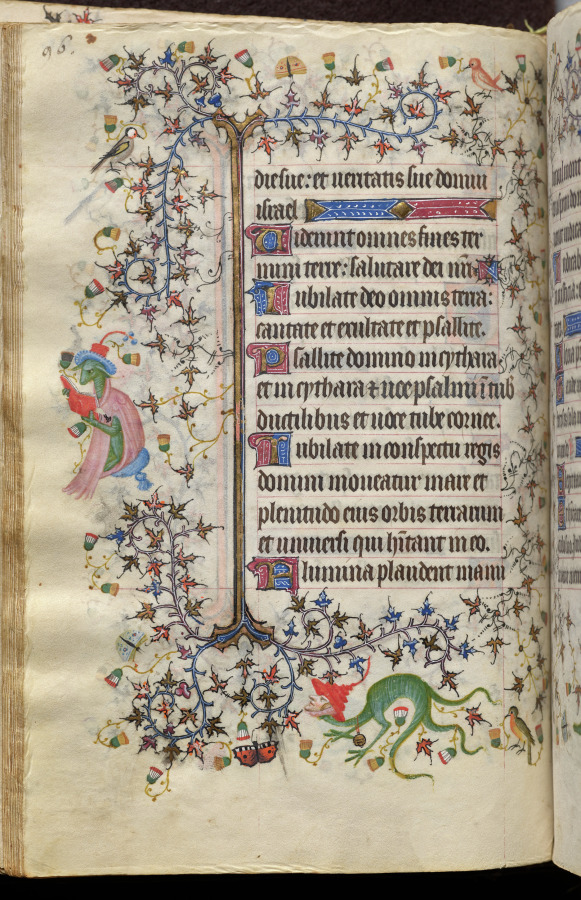 96.
die sue: et ueritatis sue domui
israel
Uiderunt omnes fines ter
mini terre: salutare dei nr̄i
Iubilate deo omnis terra:
cantate et exultate et psallite.
Psallite domino in cythara,
et in cythara ⁊ uoce psalmi ī tub
ductilibus et uoce tube cornee.
Iubilate in conspectu regis
domini moueatur mare et
plenitudo eius orbis terrarum
et uniuersi qui hītant in eo.
Flumina plaudent manu